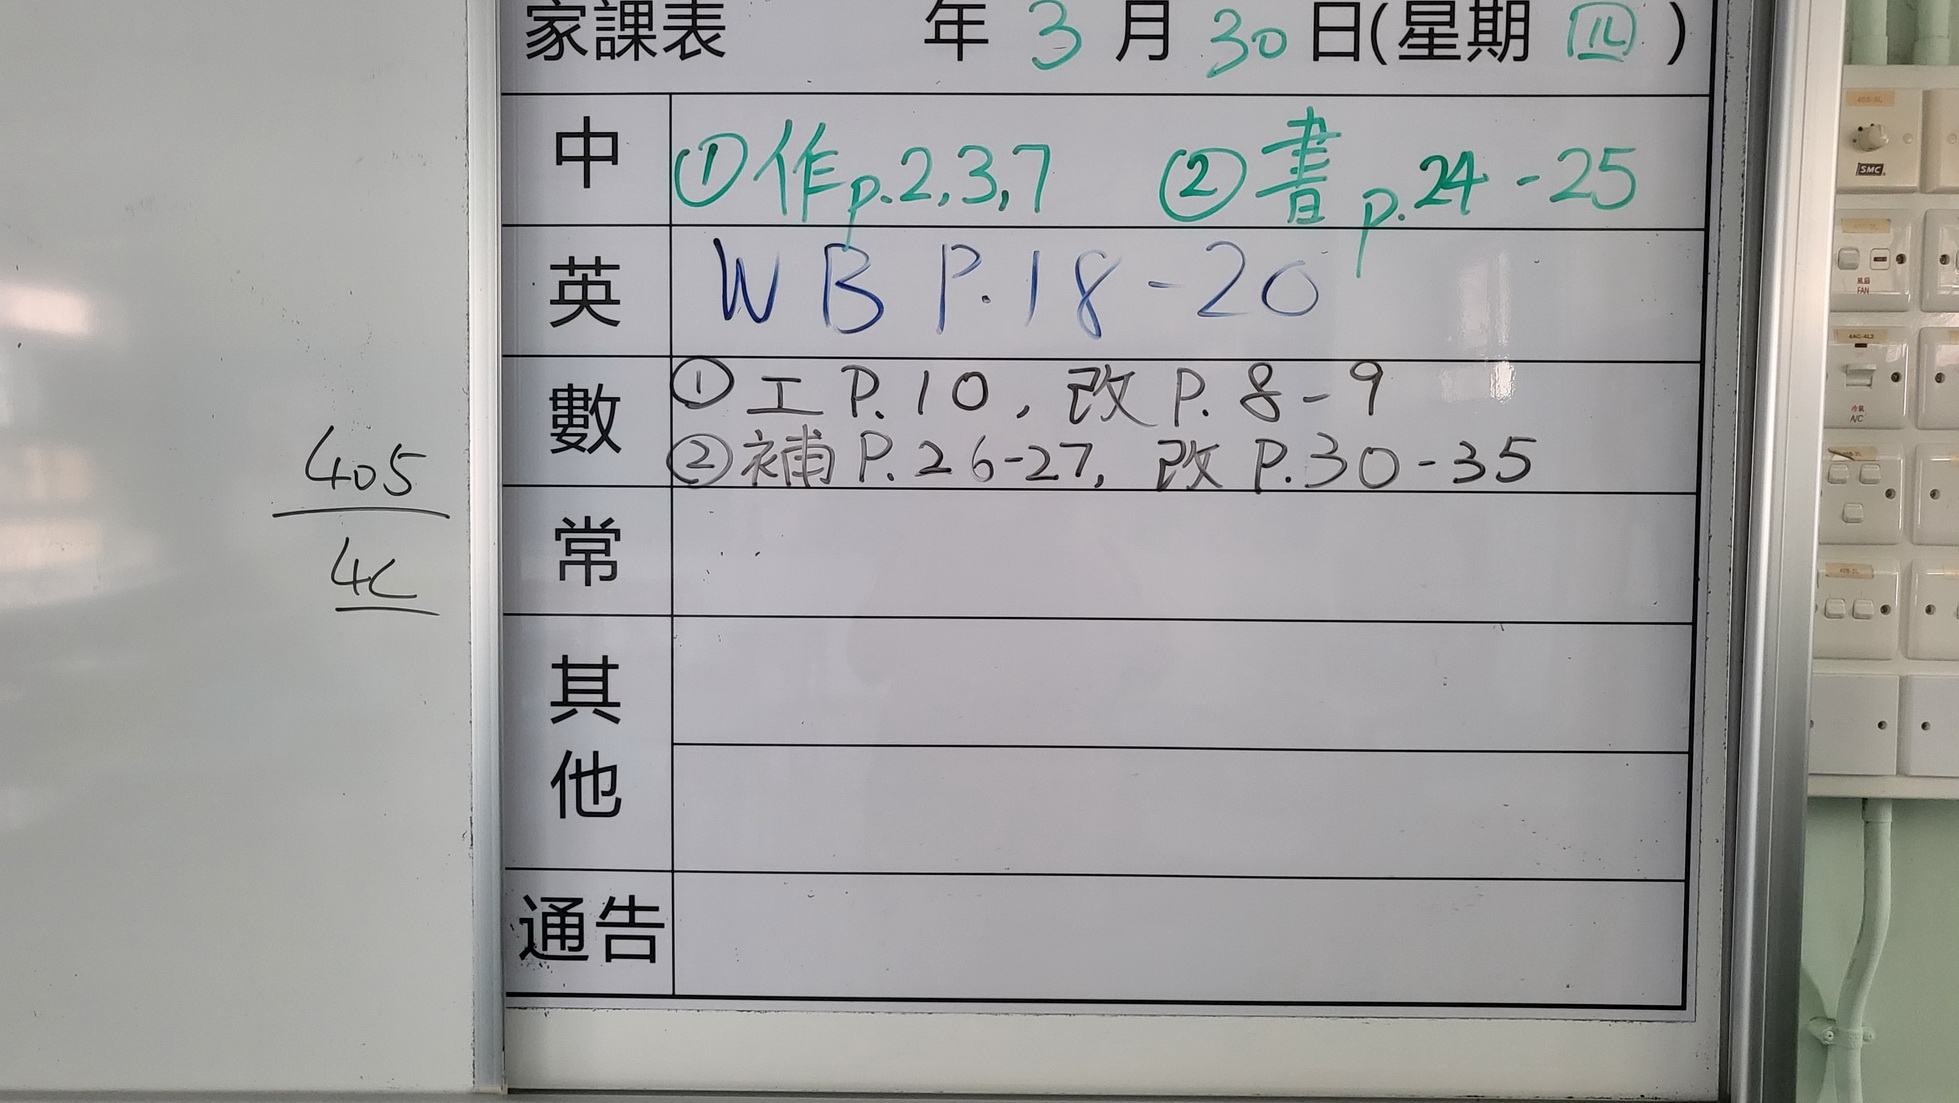 家課表 年 3 月 30 日(星期 四 )
中 ①作p.2,3,7 ②書p.24-25
英 WB P.18-20
數 ①工 P.10, 改 P.8-9
②補 P.26-27, 改 P.30-35
常
其他
通告
405
4C
SMC
風扇
FAN
冷氣
A/C